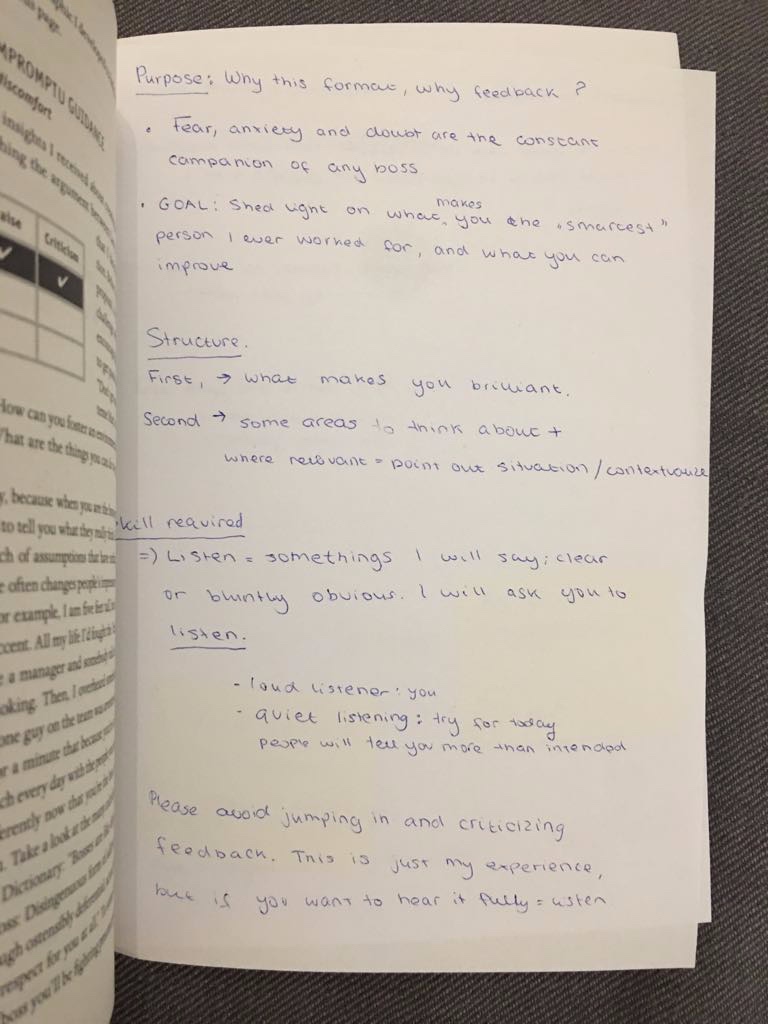 this page.
MPROMPTU GUIDANCE
discomfort
insights I received about
hing the argument between
aise Criticism
How can you foster an
What are the things you can do
y, because when you are the
to tell you what they really
ch of assumptions that have
e often changes people's
or example, I am five feet tall
ccent. All my life I'd fought the
e a manager and somebody
oking. Then, I overheard
one guy on the team was
r a minute that because your
ch every day with the people
erently now that you're the
n. Take a look at the many
Dictionary: "Bosses are like
oss: Disingenuous form of
ugh ostensibly deferential
respect for you at all."
boss you'll be fighting
Purpose: Why this format, why feedback ?
• Fear, anxiety and doubt are the constant
companion of any boss
• GOAL: Shed light on what makes you the „smartest"
person I ever worked for, and what you can
improve
Structure.
First, → what makes you brilliant.
Second → some areas to think about +
where relevant = point out situation / contextualize
skill required
=) Listen = somethings I will say; clear
or bluntly obvious. I will ask you to
listen.
- loud listener: you
- quiet listening: try for today
people will tell you more than intended
Please avoid jumping in and criticizing
feedback. This is just my experience,
but if you want to hear it fully = listen